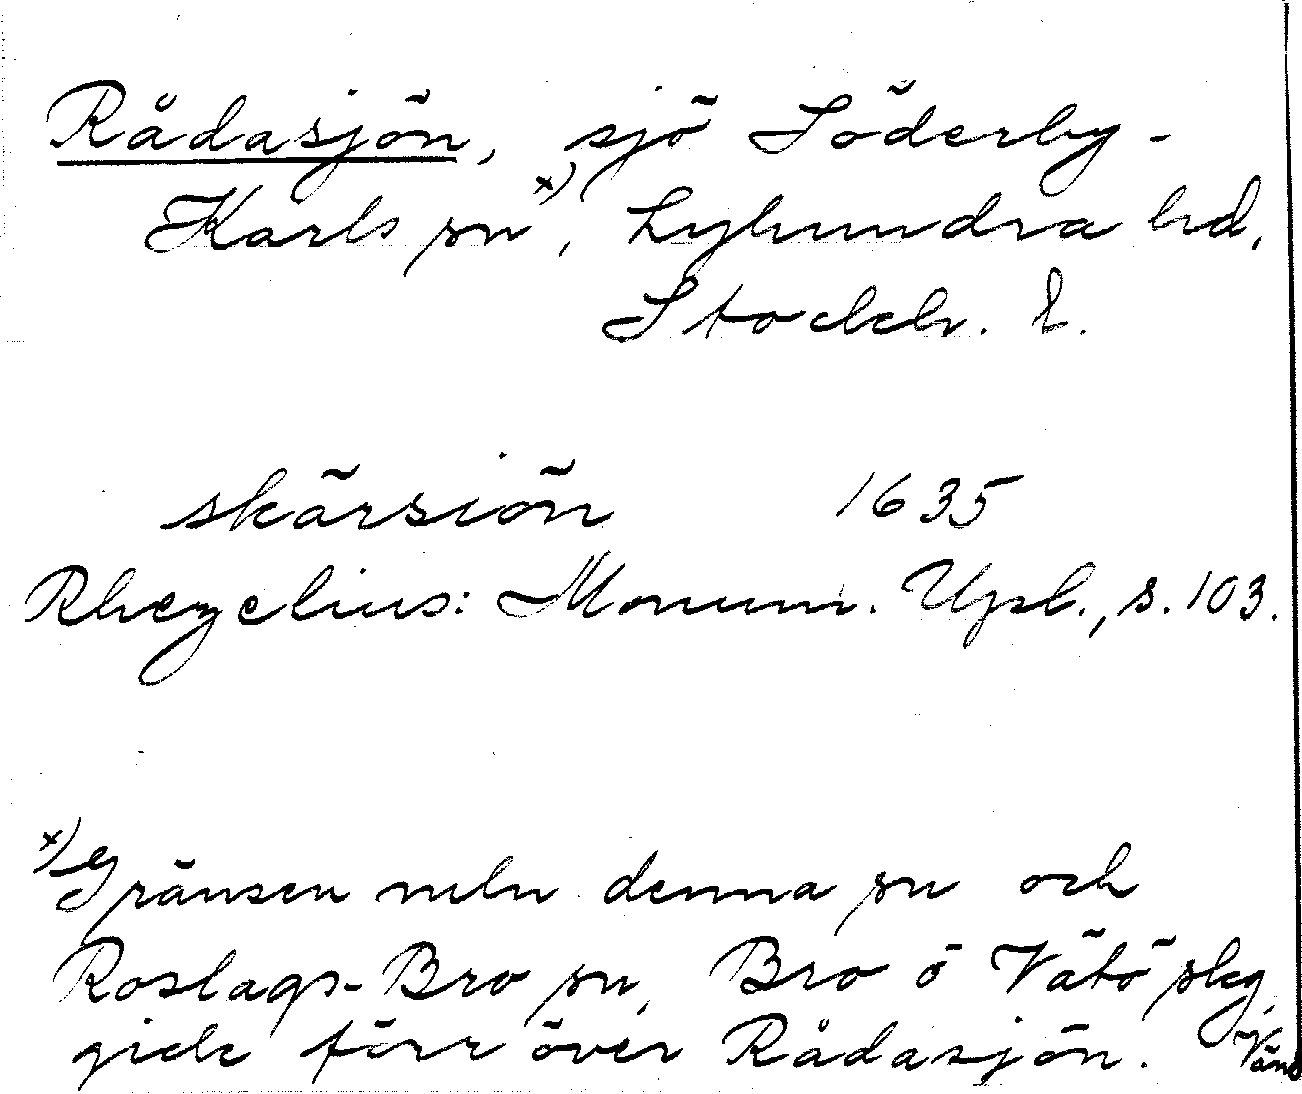 Rådasjön, sjö Söderby-
Karls sn x), Lyhundra hd,
Stockh. l.
skärsiön 1635
Rhezelius: Monum. Upl., s. 103.
x) Gränsen mln denna sn och
Roslags-Bro sn, Bro o Vätö skg,
gick förr över Rådasjön. Vänd